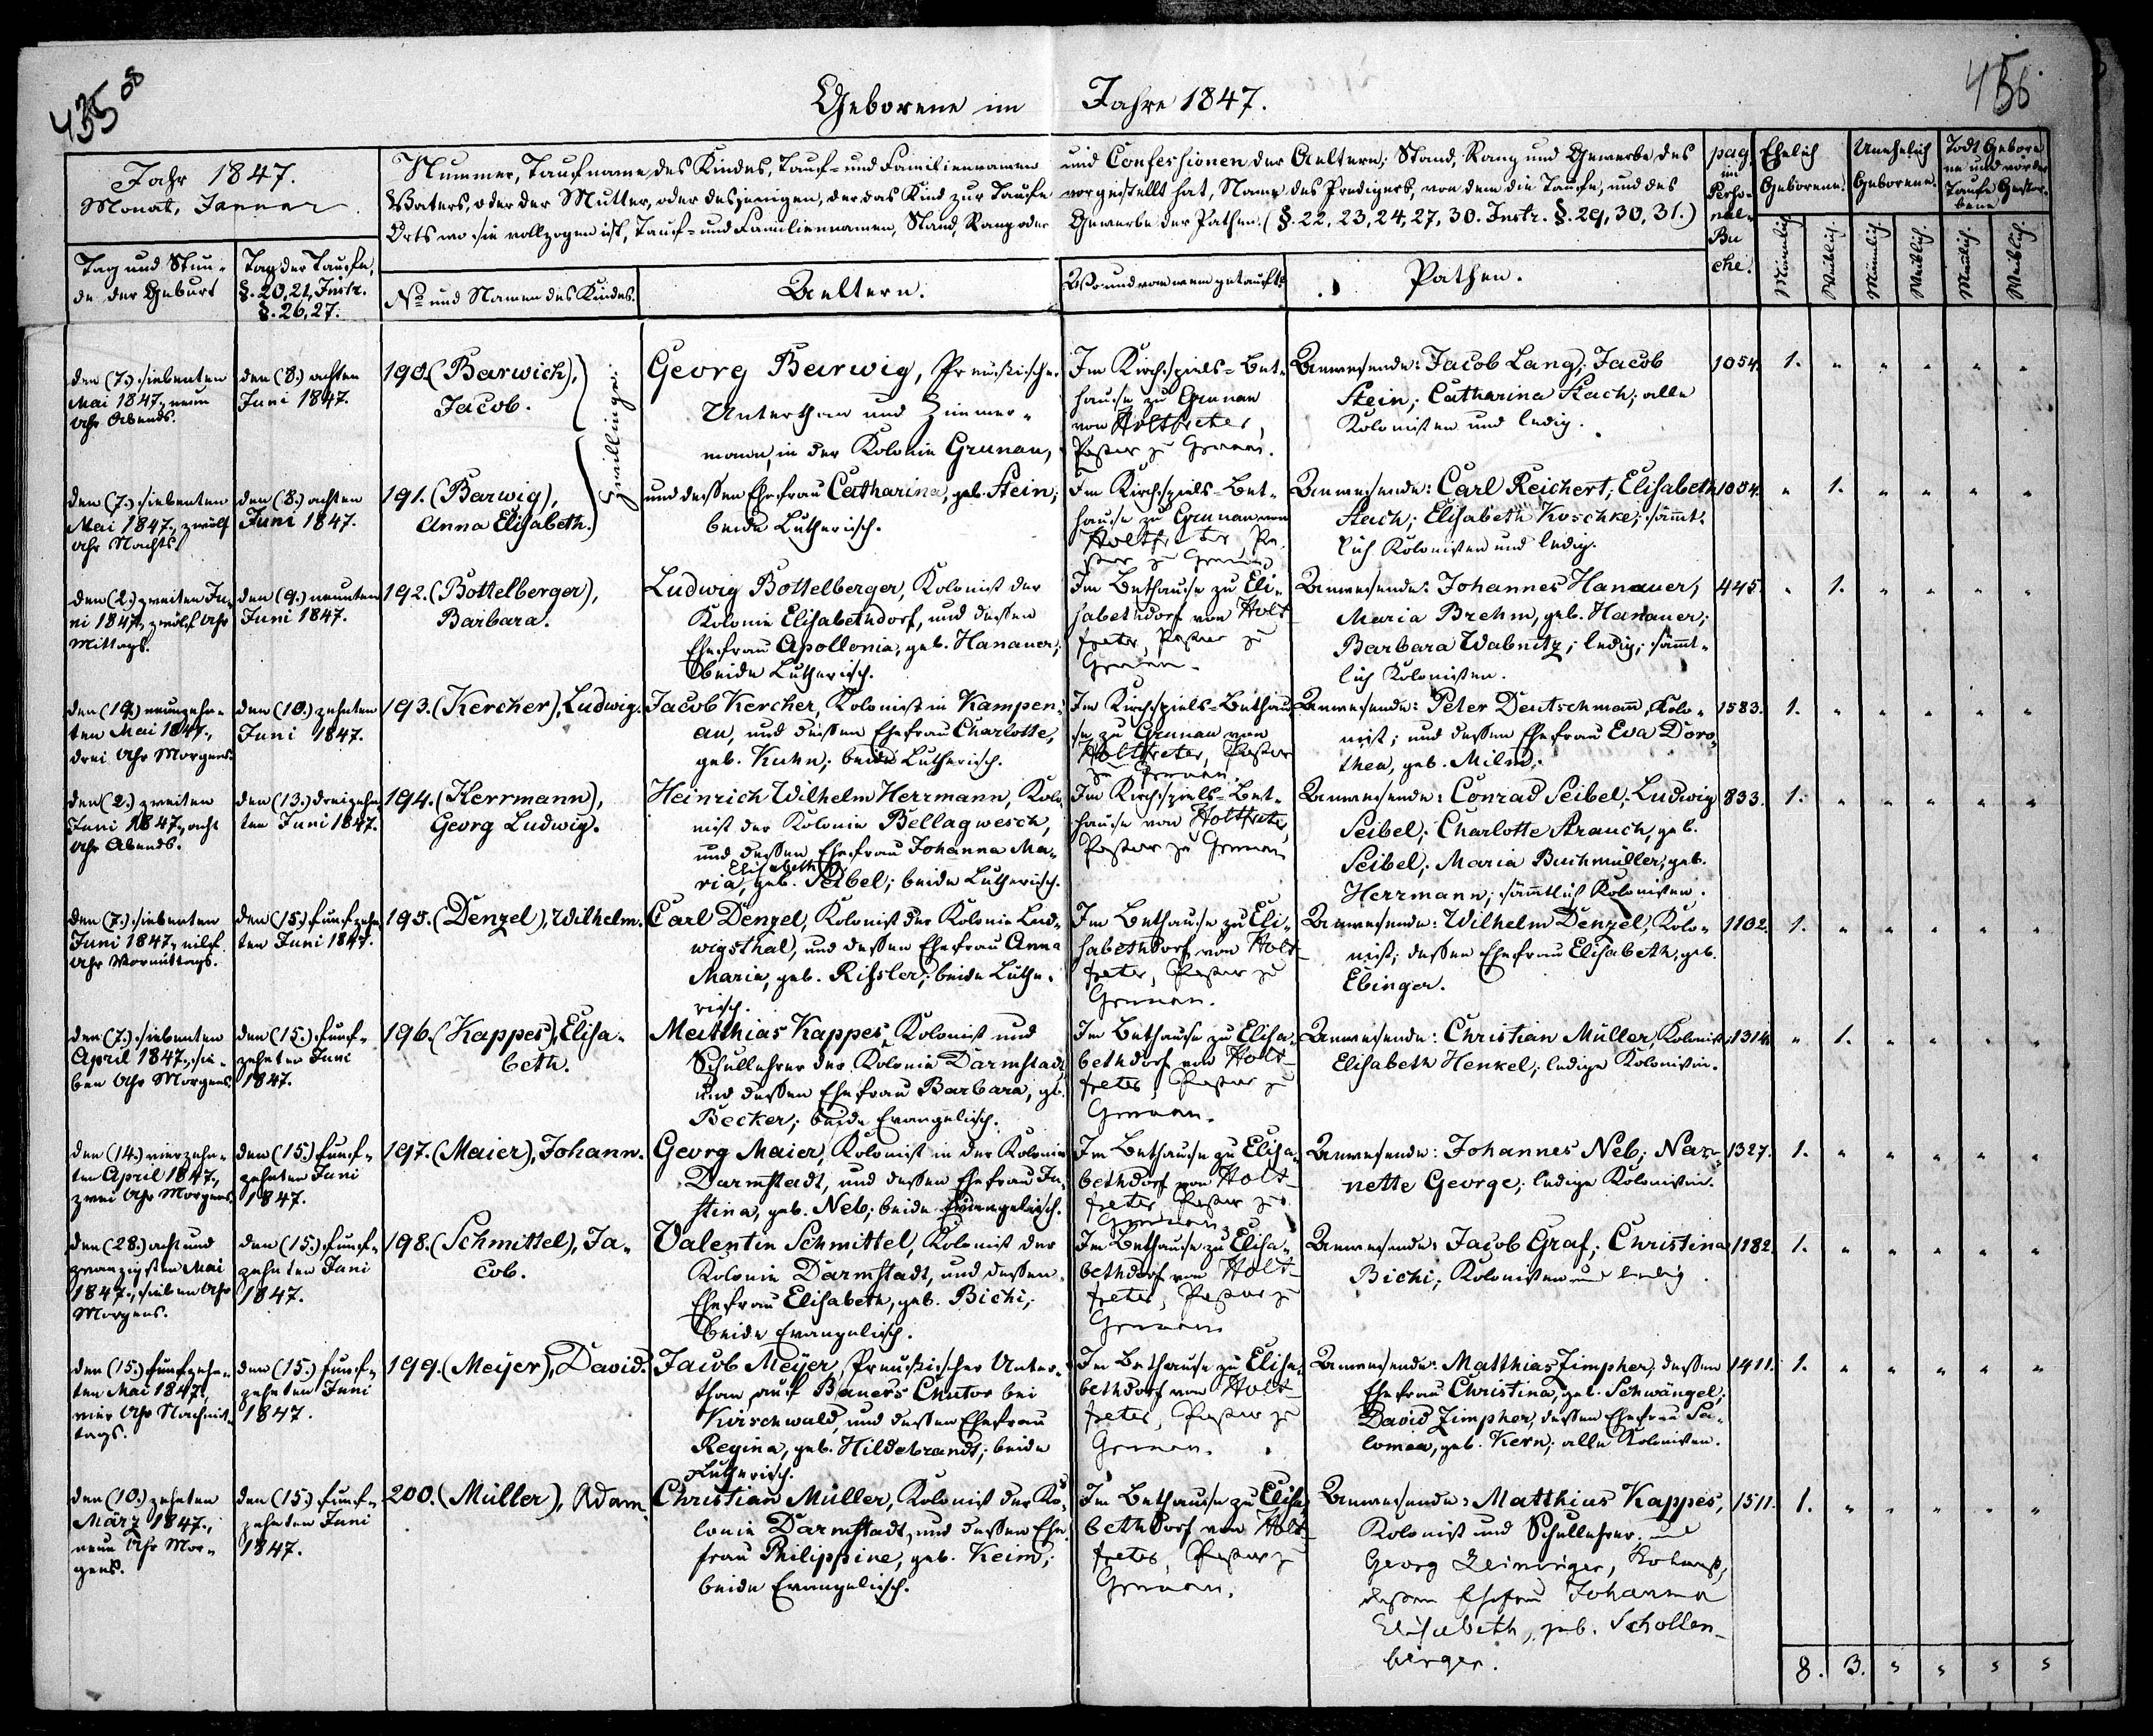 435
456
Geborene im Jahre 1847.
Jahr 1847.
Monat, Januar
Tag und Stun-
de der Geburt
Tag der Taufe,
§. 20, 21, Instr.
§. 26, 27.
Nummer, Taufname des Kindes, Tauf- und Familiennamen und Confessionen der Aeltern; Stand, Rang und Gewerbe des
Vaters, oder der Mutter, oder desjenigen, der das Kind zur Taufe vorgestellt hat, Name des Predigers, von dem die Taufe, und des
Orts wo sie vollzogen ist, Tauf- und Familiennamen, Stand, Rang oder Gewerbe der Pathen. (§. 22, 23, 24, 27, 30. Instr. §. 29, 30, 31.)
No und Namen des Kindes.
Aeltern.
Wo und von wem getauft?
Pathen.
pag.
im
Perso-
nal-
Bu
che.
Ehelich
Geborene.
Unehelich
Geborene.
Todt Gebore
ne und vor der
Taufe Gestor-
bene
Männlich
Weiblich.
Männlich
Weiblich.
Männlich.
Weiblich.
den (7.) siebenten
Mai 1847, neun
Uhr Abends.
den (8.) achten
Juni 1847.
190. (Barwich),
Jacob.
Zwillinge.
Georg Barwig, Preußischer
Unterthan und Zimmer-
mann, in der Kolonie Grunau,
Im Kirchspiels-Bet-
hause zu Grunau
von Holtfreter,
Pastor zu Grunau.
Anwesende: Jacob Lang; Jacob
Stein; Catharina Stach; alle
Kolonisten und ledig.
1054. 1. " " " " "
den (7.) siebenten
Mai 1847, zwölf
Uhr Nachts.
den (8.) achten
Juni 1847.
191. (Barwig),
Anna Elisabeth.
und dessen Ehefrau Catharina, geb. Stein;
beide Lutherisch.
Im Kirchspiels-Bet-
hause zu Grunau von
Holtfreter Pa-
stor zu Grunau
Anwesende: Carl Reichert; Elisabeth
Stach; Elisabeth Koschke; sämmt-
lich Kolonisten und ledig.
1054. " 1. " " " "
den (2.) zweiten Ju-
ni 1847, zwölf Uhr
Mittags.
den (9.) neunten
Juni 1847.
192. (Bottelberger),
Barbara.
Ludwig Bottelberger, Kolonist der
Kolonie Elisabethdorf, und dessen
Ehefrau Apollonia, geb. Hanauer;
beide Lutherisch.
Im Bethause zu Eli-
sabethdorf von Holt-
freter, Pastor zu
Grunau.
Anwesende: Johannes Hanauer;
Maria Brehm, geb. Hanauer;
Barbara Wabnitz; ledig; sämmt-
lich Kolonisten.
445. " 1. " " " "
den (19.) neunzehn-
ten Mai 1847,
drei Uhr Morgens.
den (10.) zehnten
Juni 1847.
193. (Kercher), Ludwig.
Jacob Kercher, Kolonist in Kampen-
au, und dessen Ehefrau Charlotte,
geb. Kuhn; beide Lutherisch.
Im Kirchspiels-Bethau-
se zu Grunau von
Holtfreter, Pastor
zu Grunau.
Anwesende: Peter Deutschmann, Kolo-
nist; und dessen Ehefrau Eva Doro-
thea, geb. Milm;
1583. 1. " " " " "
den (2.) zweiten
Juni 1847, acht
Uhr Abends.
den (13.) dreizehn-
ten Juni 1847.
194. (Herrmann),
Georg Ludwig.
Heinrich Wilhelm Herrmann, Kolo-
nist der Kolonie Bellagwesch,
und dessen Ehefrau Johanna Ma-
Elisabeth
ria, geb. Seibel; beide Lutherisch.
Im Kirchspiels-Bet-
hause von Holtfreter,
Pastor zu Grunau
Anwesende: Conrad Seibel; Ludwig
Seibel; Charlotte Strauch, geb.
Seibel; Maria Buchmüller, geb.
Herrmann; sämmtlich Kolonisten.
833. 1. " " " " "
den (7.) siebenten
Juni 1847, eilf
Uhr Vormittags.
den (15.) funfzehn-
ten Juni 1847.
195. (Denzel), Wilhelm.
Carl Denzel, Kolonist der Kolonie Lud-
wigsthal, und dessen Ehefrau Anna
Maria, geb. Rißler; beide Luthe-
risch.
Im Bethause zu Eli-
sabethdorf von Holt-
freter, Pastor zu
Grunau.
Anwesende: Wilhelm Denzel, Kolo-
nist; dessen Ehefrau Elisabeth, geb.
Ebinger.
1102. 1. " " " " "
den (7.) siebenten
April 1847, sie-
ben Uhr Morgens.
den (15.) funf-
zehnten Juni
1847.
196. (Kappes), Elisa-
beth.
Matthias Kappes, Kolonist und
Schullehrer der Kolonie Darmstadt,
und dessen Ehefrau Barbara, gb.
Becker; beide Evangelisch.
Im Bethause zu Elisa-
bethdorf von Holt-
freter, Pastor zu
Grunau.
Anwesende: Christian Müller, Kolonist;
Elisabeth Henkel; ledige Kolonistin.
1314. " 1. " " " "
den (14.) vierzehn-
ten April 1847,
zwei Uhr Morgens.
den (15.) funf-
zehnten Juni
1847.
197. (Maier), Johann.
Georg Maier, Kolonist in der Kolonie
Darmstadt, und dessen Ehefrau Ju-
stina, geb. Neb; beide Evangelisch.
Im Bethause zu Elisa-
bethdorf von Holt-
freter, Pastor zu
Grunau.
Anwesende: Johannes Neb; Nan-
nette George; ledige Kolonistin.
1327. 1. " " " " "
den (28.) acht und
zwanzigsten Mai
1847, sieben Uhr
Morgens.
den (15.) funf-
zehnten Juni
1847.
198. (Schmittel), Ja-
cob.
Valentin Schmittel, Kolonist der
Kolonie Darmstadt, und dessen
Ehefrau Elisabeth, geb. Bichi;
beide Evangelisch.
Im Bethause zu Elisa-
bethdorf von Holt-
freter, Pastor zu
Grunau
Anwesende: Jacob Graf; Christina
Bichi; Kolonisten und ledig.
1182. 1. " " " " "
den (15.) funfzehn-
ten Mai 1847,
vier Uhr Nachmit-
tags.
den (15.) funf-
zehnten Juni
1847.
199. (Meyer), David.
Jacob Meyer, Preußischer Unter-
than auf Bauers Chutor bei
Kirschwald, und dessen Ehefrau
Regina, geb. Hildebrandt; beide
Lutherisch.
Im Bethause zu Elisa-
bethdorf von Holt-
freter, Pastor zu
Grunau.
Anwesende: Matthias Zimpher; dessen
Ehefrau Christina, geb. Schwängel;
David Zimpher, dessen Ehefrau Sa-
lomea, geb. Kern; alle Kolonisten.
1411. 1. " " " " "
den (10.) zehnten
März 1847,
neun Uhr Mor-
gens.
den (15.) funf-
zehnten Juni
1847.
200. (Müller), Adam
Christian Müller, Kolonist der Ko-
lonie Darmstadt, und dessen Ehe-
frau Philippine, geb. Keim;
beide Evangelisch.
Im Bethause zu Elisa-
bethdorf von Holt-
freter, Pastor zu
Grunau.
Anwesende: Matthias Kappes,
Kolonist und Schullehrer und
Georg Leininger, Kolonist,
dessen Ehefrau Johanna
Elisabeth, geb. Schollen-
berger.
1511. 1. " " " " "
8. 3. " " " "